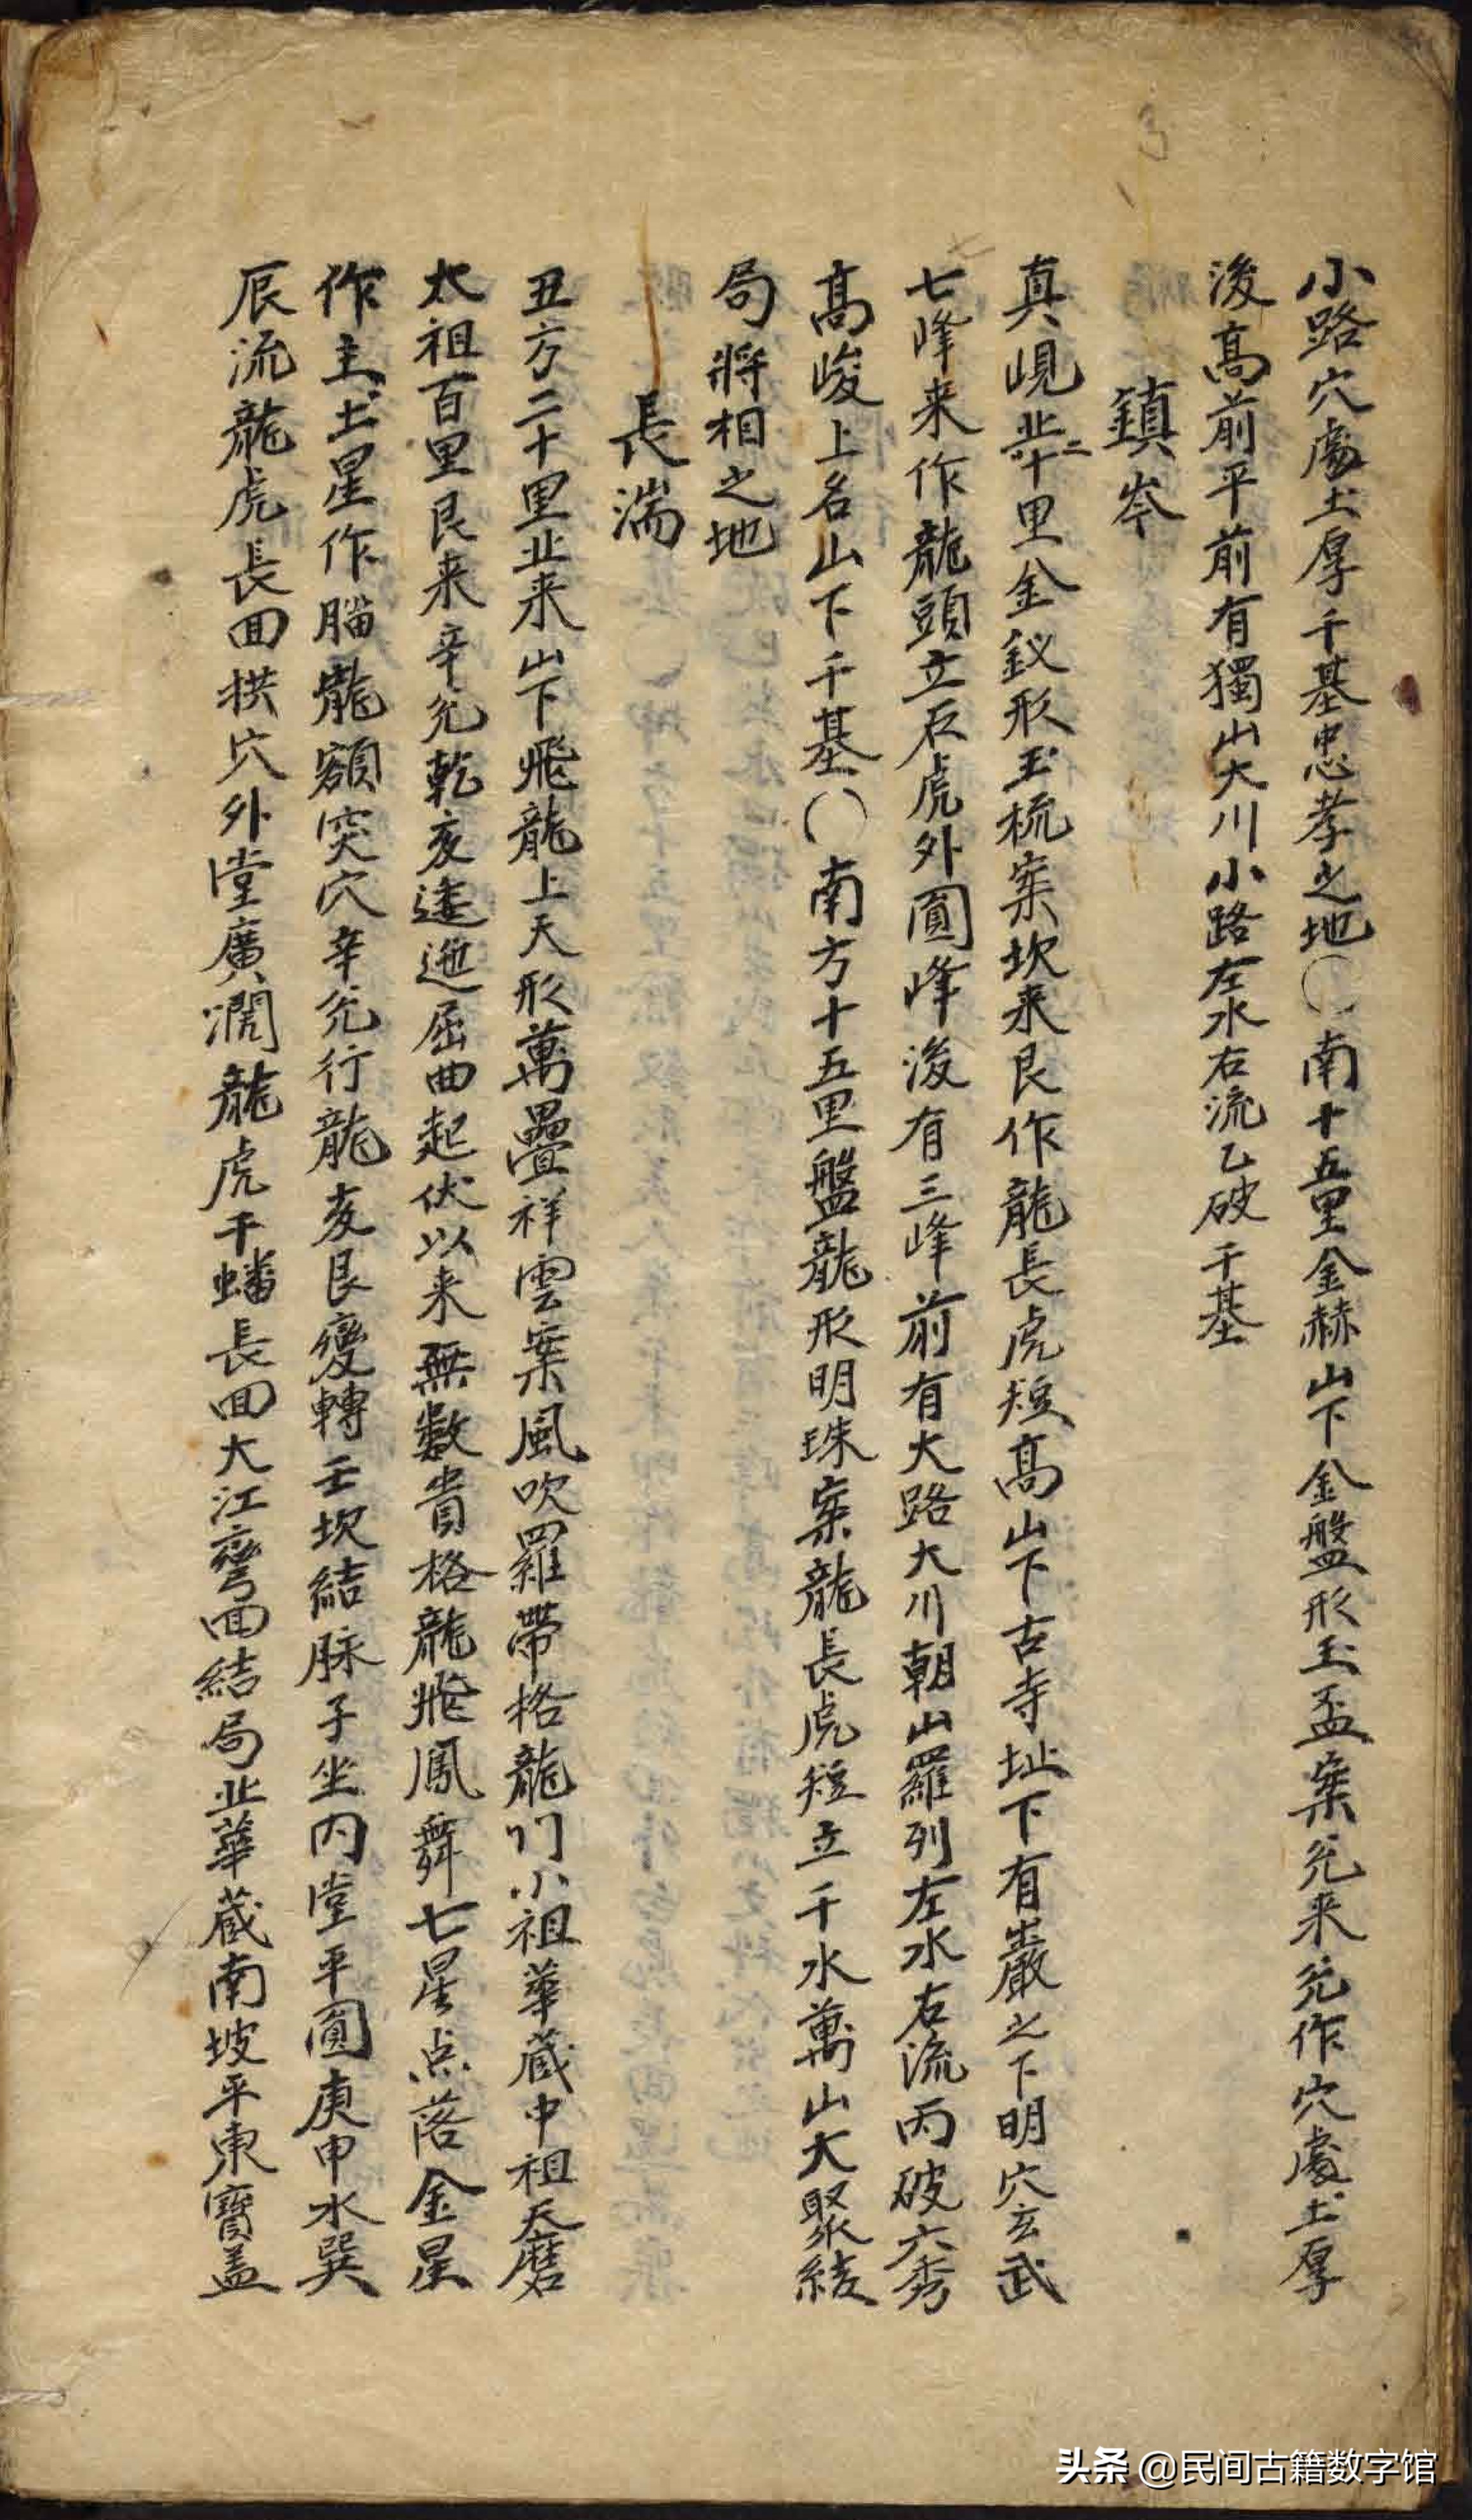 小路穴處土厚千基忠孝之地〇南十五里金赫山下金盤形玉盃案兌来兌作穴處土厚
後高前平前有獨山大川小路左水右流乙破千基
鎮岑
真峴北二十里金釵形玉梳案坎来艮作龍長虎短高山下古寺址下有巖之下明穴玄武
七峰来作龍頭立石虎外圓峰後有三峰前有大路大川朝山羅列左水右流丙破六秀
高峻上名山下千基〇南方十五里盤龍形明珠案龍長虎短立千水萬山大聚結
局將相之地
長湍
丑方二十里北来山下飛龍上天形萬疊祥雲案風吹羅帶格龍门小祖華蔵中祖天磨
太祖百里艮来辛兌乾亥逶迤屈曲起伏以来無数貴格龍飛鳳舞七星点落金星
作主土星作腦龍額突穴辛兌行龍亥艮變轉壬坎結脉子坐内堂平圓庚申水巽
辰流龍虎長回拱穴外堂廣濶龍虎千蟠長回大江彎回結局北華蔵南坡平東寶盖
头条 @民间古籍数字馆